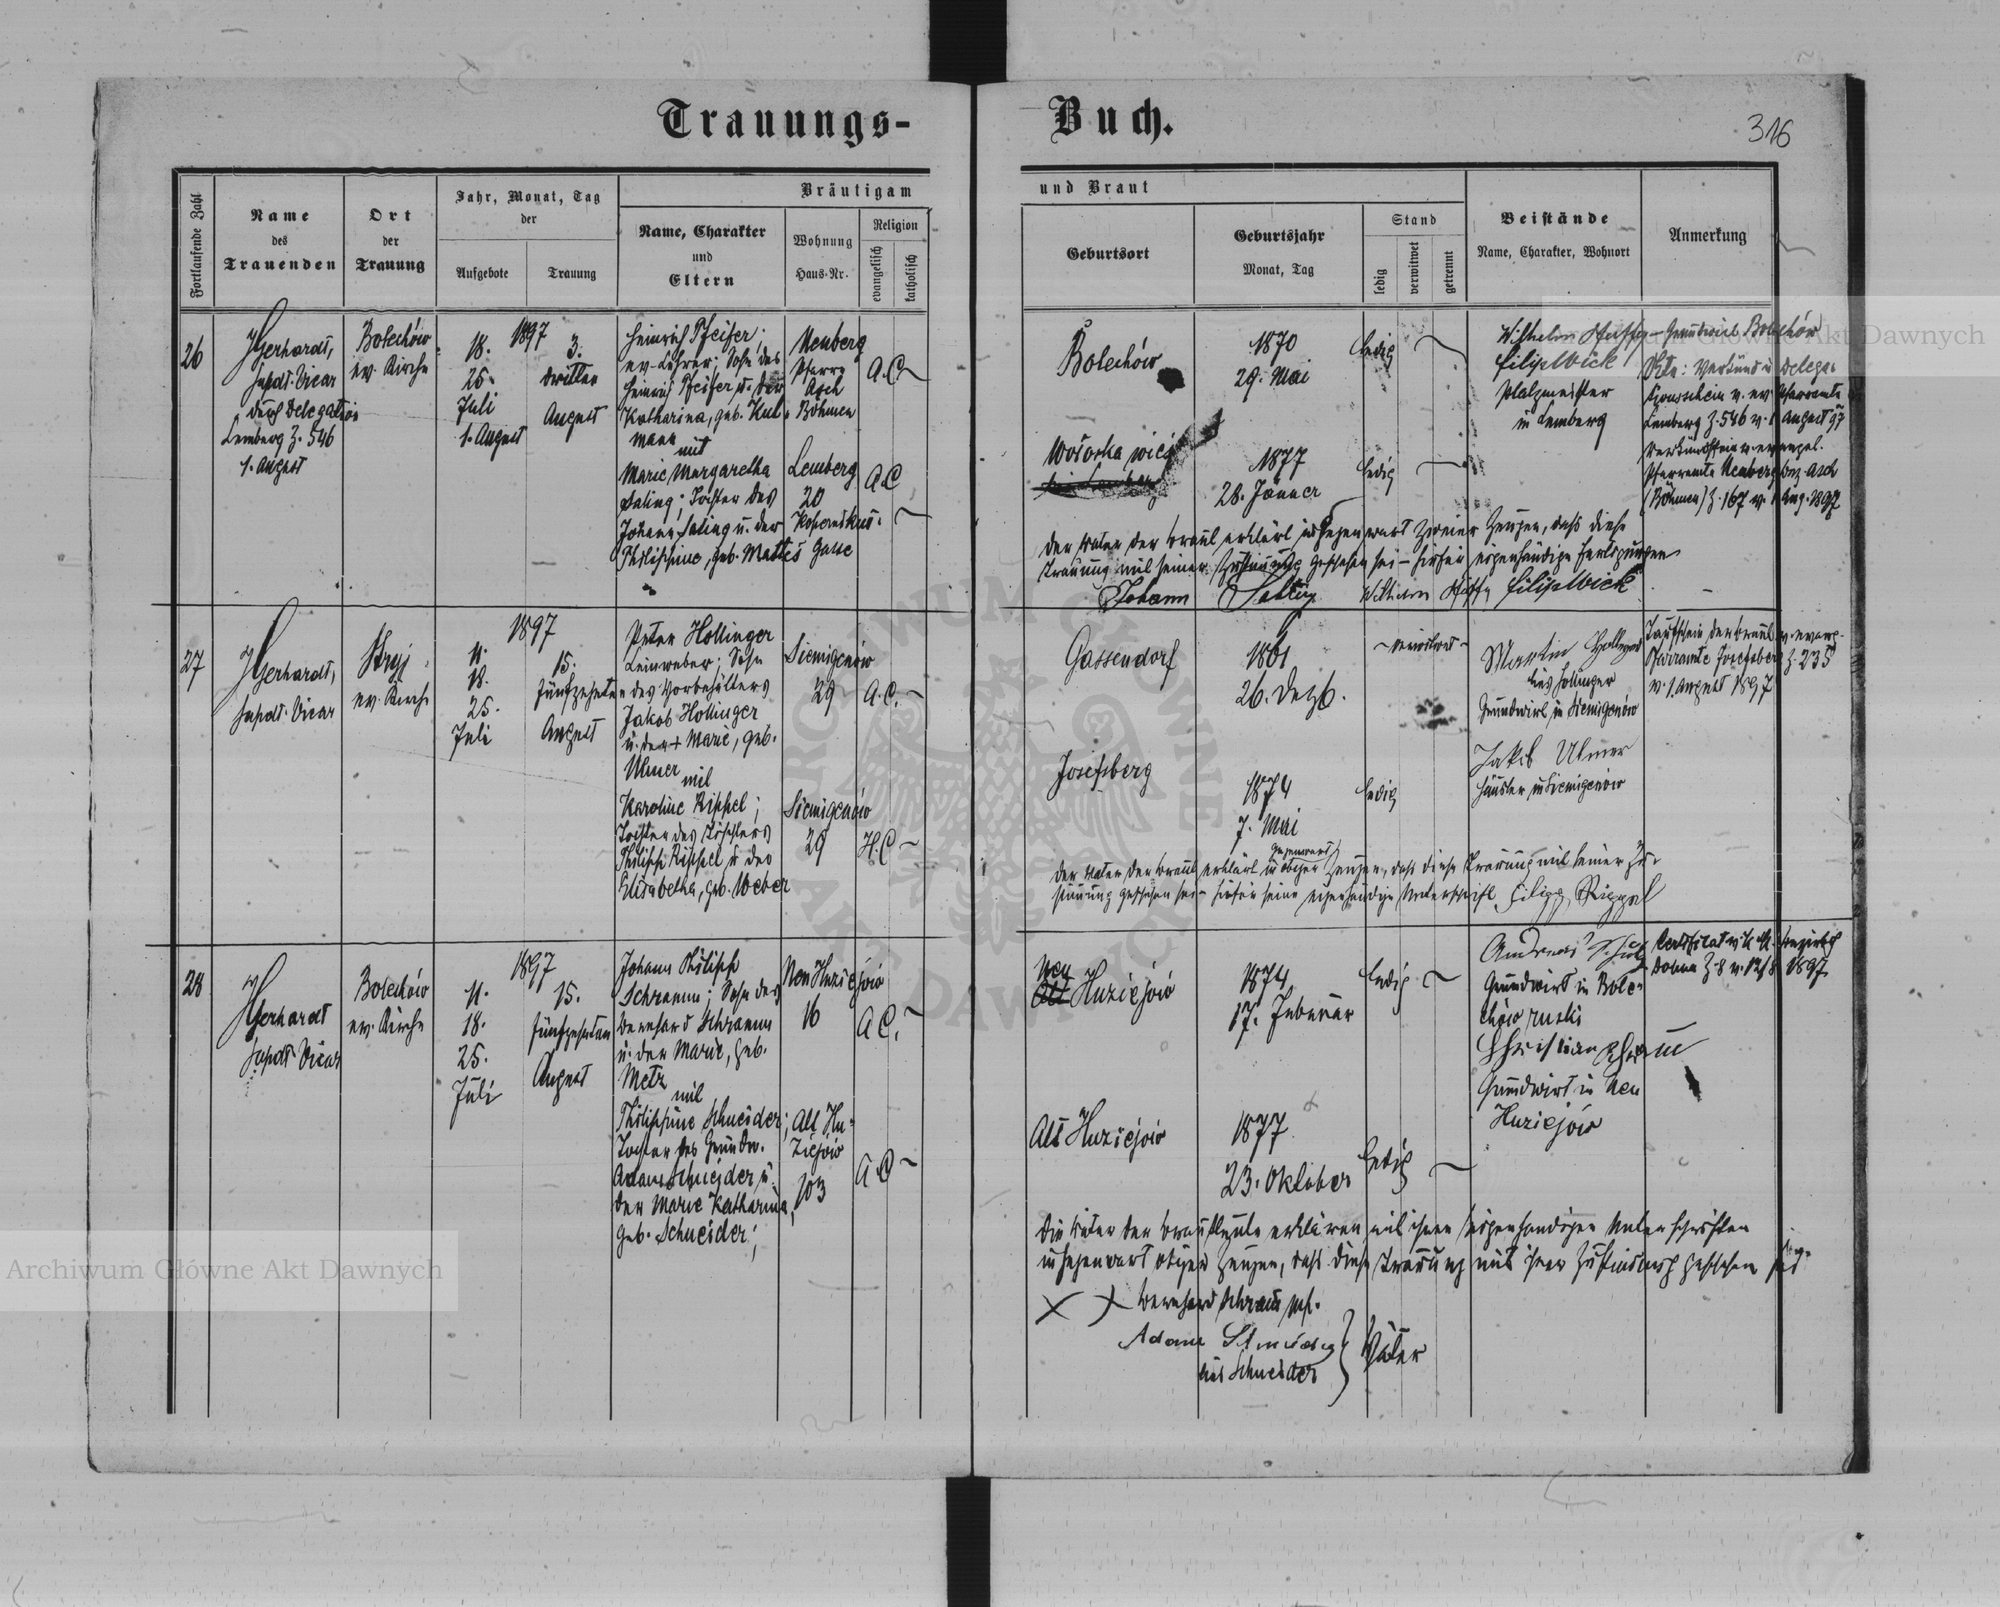 Trauungs-
Buch.
316
Fortlaufende Zahl
Name
des
Trauenden
Ort
der
Trauung
Jahr, Monat, Tag
der
Aufgebote
Trauung
Bräutigam
Name, Charakter
und
Eltern
Wohnung
Haus-Nr.
Religion
evangelisch
katholisch
und Braut
Geburtsort
Geburtsjahr
Monat, Tag
Stand
ledig
verwitwet
getrennt
Beistände
Name, Charakter, Wohnort
Anmerkung
26
Gerhardt,
Vicar
durch Delegation
Lemberg Z. 546
1. August
Bolechów
ev. Kirche
1897
18.
25.
Juli
1. August
3.
dritter
August
Heinrich Pfeifer;
ev. Lehrer; Sohn des
Heinrich Pfeifer u. der
Katharina, geb. Kul-
mann
mit
Marie Margaretha
Saling; Tochter des
Johann Saling u. der
Philippine, geb. Mattes
Neuberg
Pfarre
Asch
Böhmen
Lemberg
20
Kopernikus-
Gasse
A.C.
A.C.
Bolechów
1870
29. Mai
ledig
Wołoska wieś
1877
28. Jänner
ledig
Wilhelm
Filip Wick
Platzmeister
in Lemberg
Grundwirt Bolechów
Verkünd u. Delega-
tionsschein v. ev. Pfarramte
Lemberg Z. 546 v. 1. August 97
Verkündschein v. evangel.
Pfarramte Neuberg bez. Asch
(Böhmen) Z. 167 v. 1. Aug. 1897
Der Vater der Braut erklärt in Gegenwart zweier Zeugen, dass diese
Trauung mit seiner Zustimmung geschehen sei – hiefür eigenhändige Fertigungen
Johann Saling Wilhelm Filip Wick
27
Gerhardt,
Vicar
Stryj
ev. Kirche
1897
11.
18.
25.
Juli
15.
fünfzehnten
August
Peter Hollinger
Leinweber; Sohn
des Vorbehälters
Jakob Hollinger
u. der + Marie, geb.
Ulmer
mit
Karoline Rippel;
Tochter des Tischlers
Philipp Rippel u. der
Elisabetha, geb. Weber
Siemigenów
29
A.C.
Siemigenów
29
H.C.
Gassendorf
1861
26. Dezb.
verwitwet
Josefsberg
1874
7. Mai
ledig
Martin
Hollinger
Grundwirt in Siemigenów
Jakob Ulmer
Häusler in Siemigenów
Taufschein der Braut v. evang.
Pfarramte Josefsberg Z. 235
v. 1. August 1897
Der Vater der Braut erklärt in Gegenwart obiger Zeugen, dass diese Trauung mit seiner Zu-
stimmung geschehen sei – hiefür seine eigenhändige Unterschrift. Filipp Rippel
28
Gerhardt
Vicar
Bolechów
ev. Kirche
1897
11.
18.
25.
Juli
15.
fünfzehnten
August
Johann Philipp
Schramm; Sohn des
Bernhard Schramm
u. der Marie, geb.
Metz
mit
Philippine Schneider;
Tochter des Grundw.
Adam Schneider u.
der Marie Katharina,
geb. Schneider;
Neu Huziejów
16
A.C.
Alt Hu-
ziejów
103
A.C.
Neu
Huziejów
1874
17. Februar
ledig
Alt Huziejów
1877
23. Oktober
ledig
Andreas
Grundwirt in Bole-
chów ruski
Christian Schramm
Grundwirt in Neu
Huziejów
Certificat
Dolina Z. 8 v. 12/8 1897
Die Väter der Brautleute erklären mit ihren eigenhändigen Unterschriften
in Gegenwart obiger Zeugen, dass diese Trauung mit ihrer Zustimmung geschehen sei
Bernhard Schramm
Adam
Schneider
Väter
Archiwum Główne Akt Dawnych
Archiwum Główne Akt Dawnych
ARCHIWUM GŁÓWNE
AKT DAWNYCH